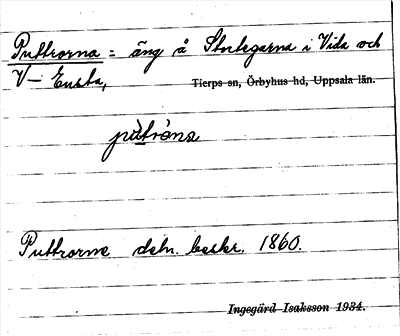 Puttrorna = äng å Stortegarna i Vida och
V— Ensta, Tierps sn, Örbyhus hd, Uppsala län.
Puttrorne deln. beskr. 1860.
Ingegärd Isaksson 1934.